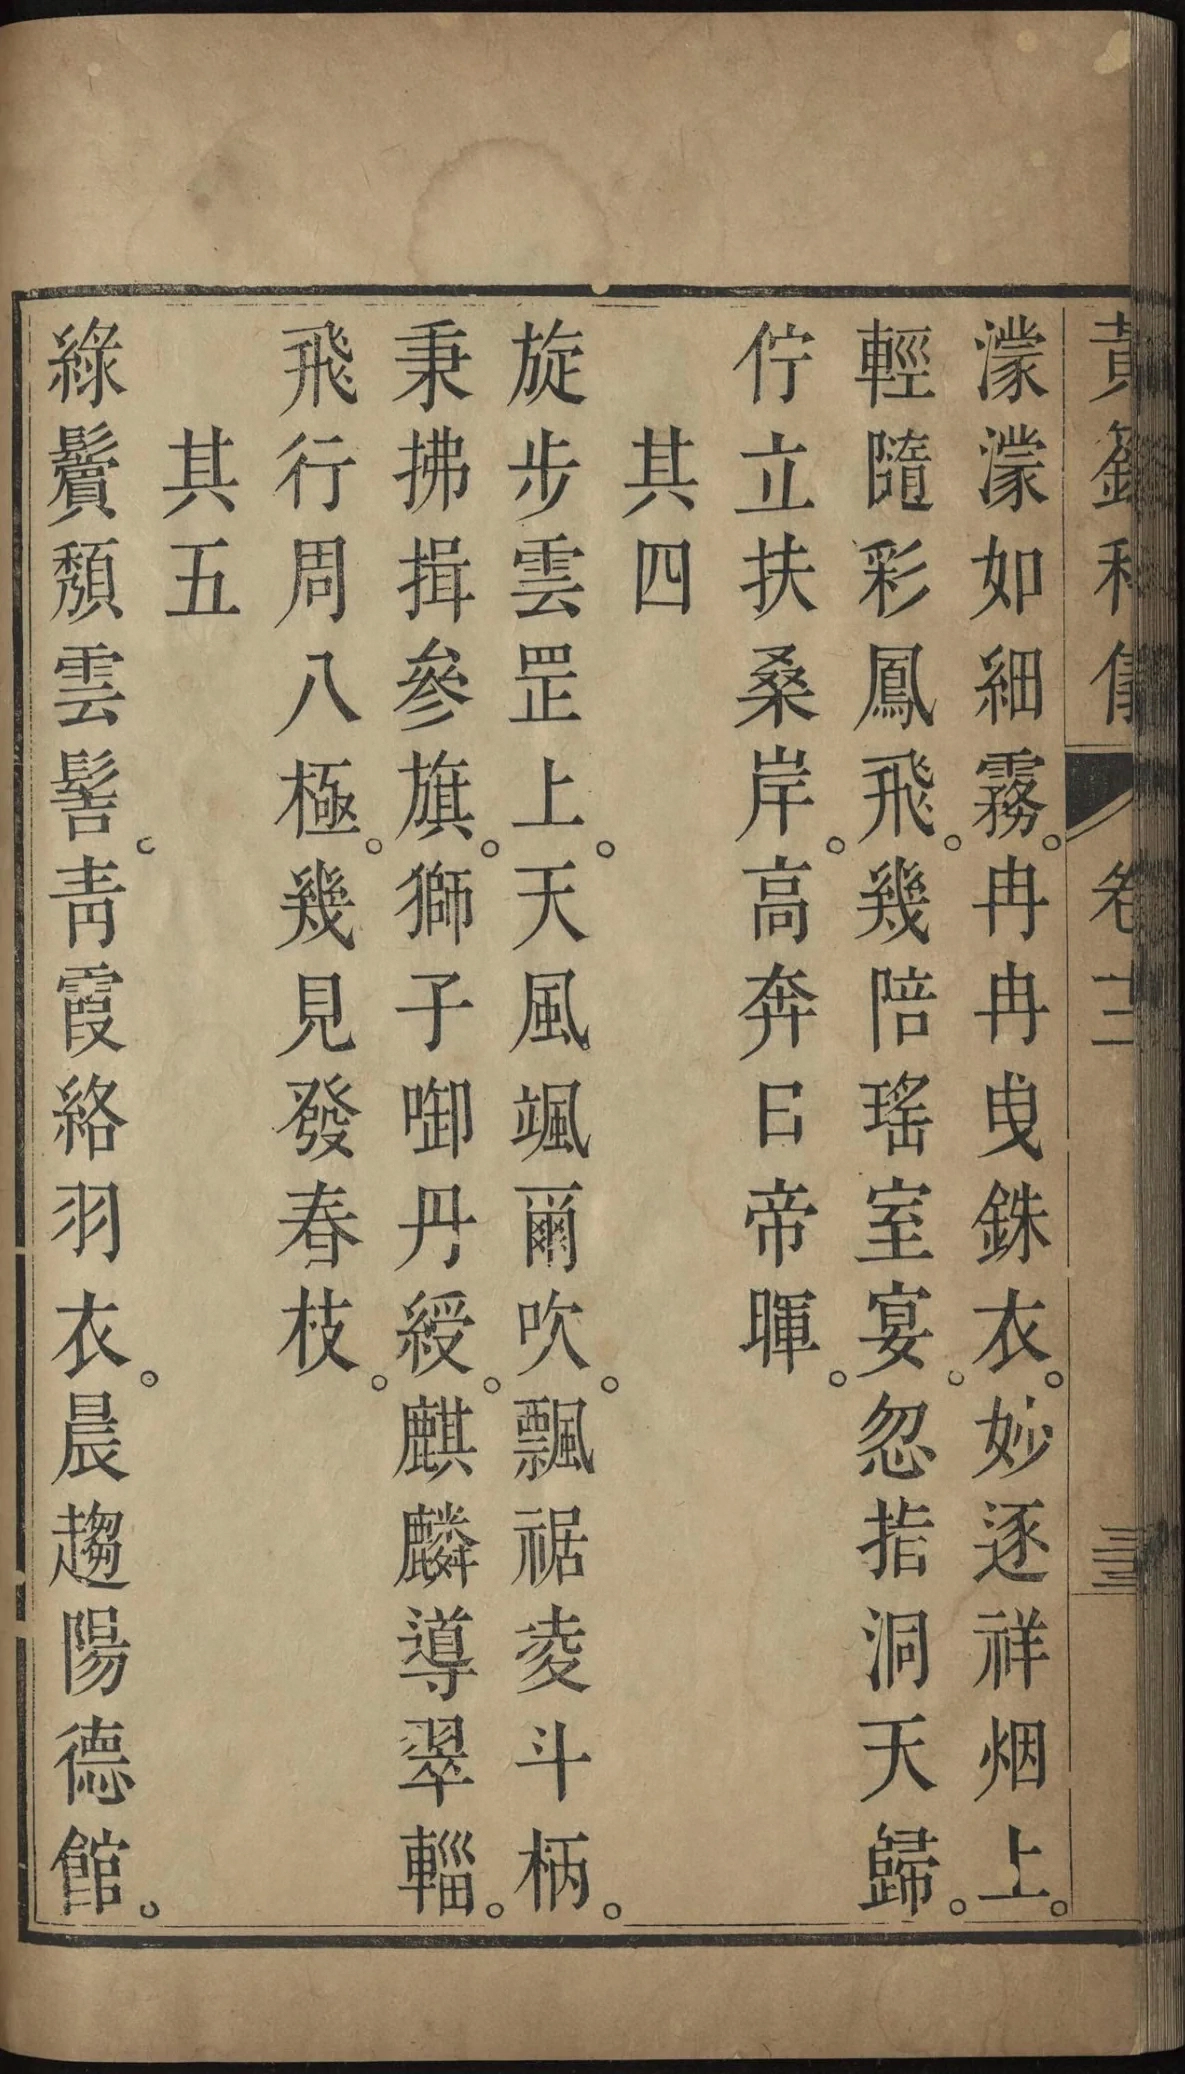 濛濛如細霧。冉冉曳銖衣。妙逐祥烟上。
輕隨彩鳳飛。幾陪瑤室宴。忽指洞天歸。
佇立扶桑岸。高奔日帝暉。
其四
旋步雲罡上。天風颯爾吹。飄裾凌斗柄。
秉拂揖參旗。獅子啣丹綬。麒麟導翠輜。
飛行周八極。幾見發春枝。
其五
綠鬢頹雲髻。青霞絡羽衣。晨趨陽德館。